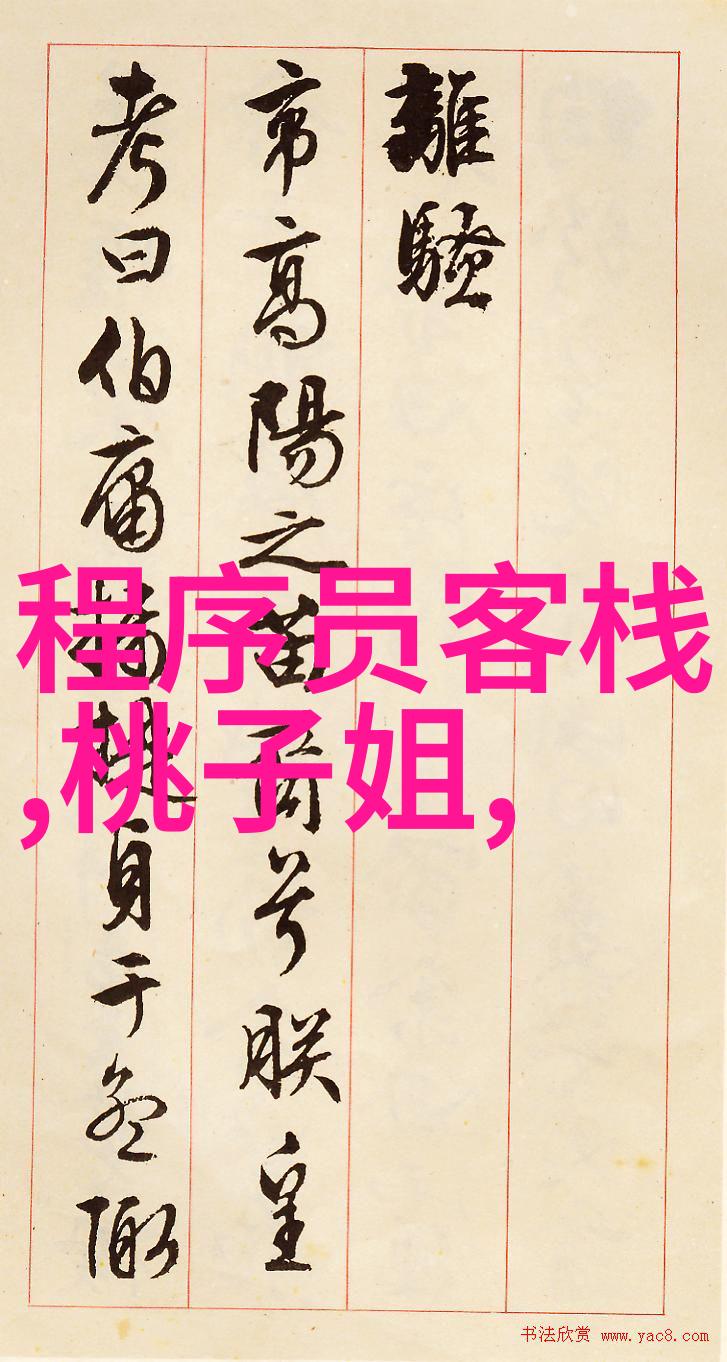 離騷
帝高陽之苗裔兮朕皇
考曰伯庸攝提貞于孟陬
程序员客栈
,桃子姐,
书法欣赏 www.yac8.com